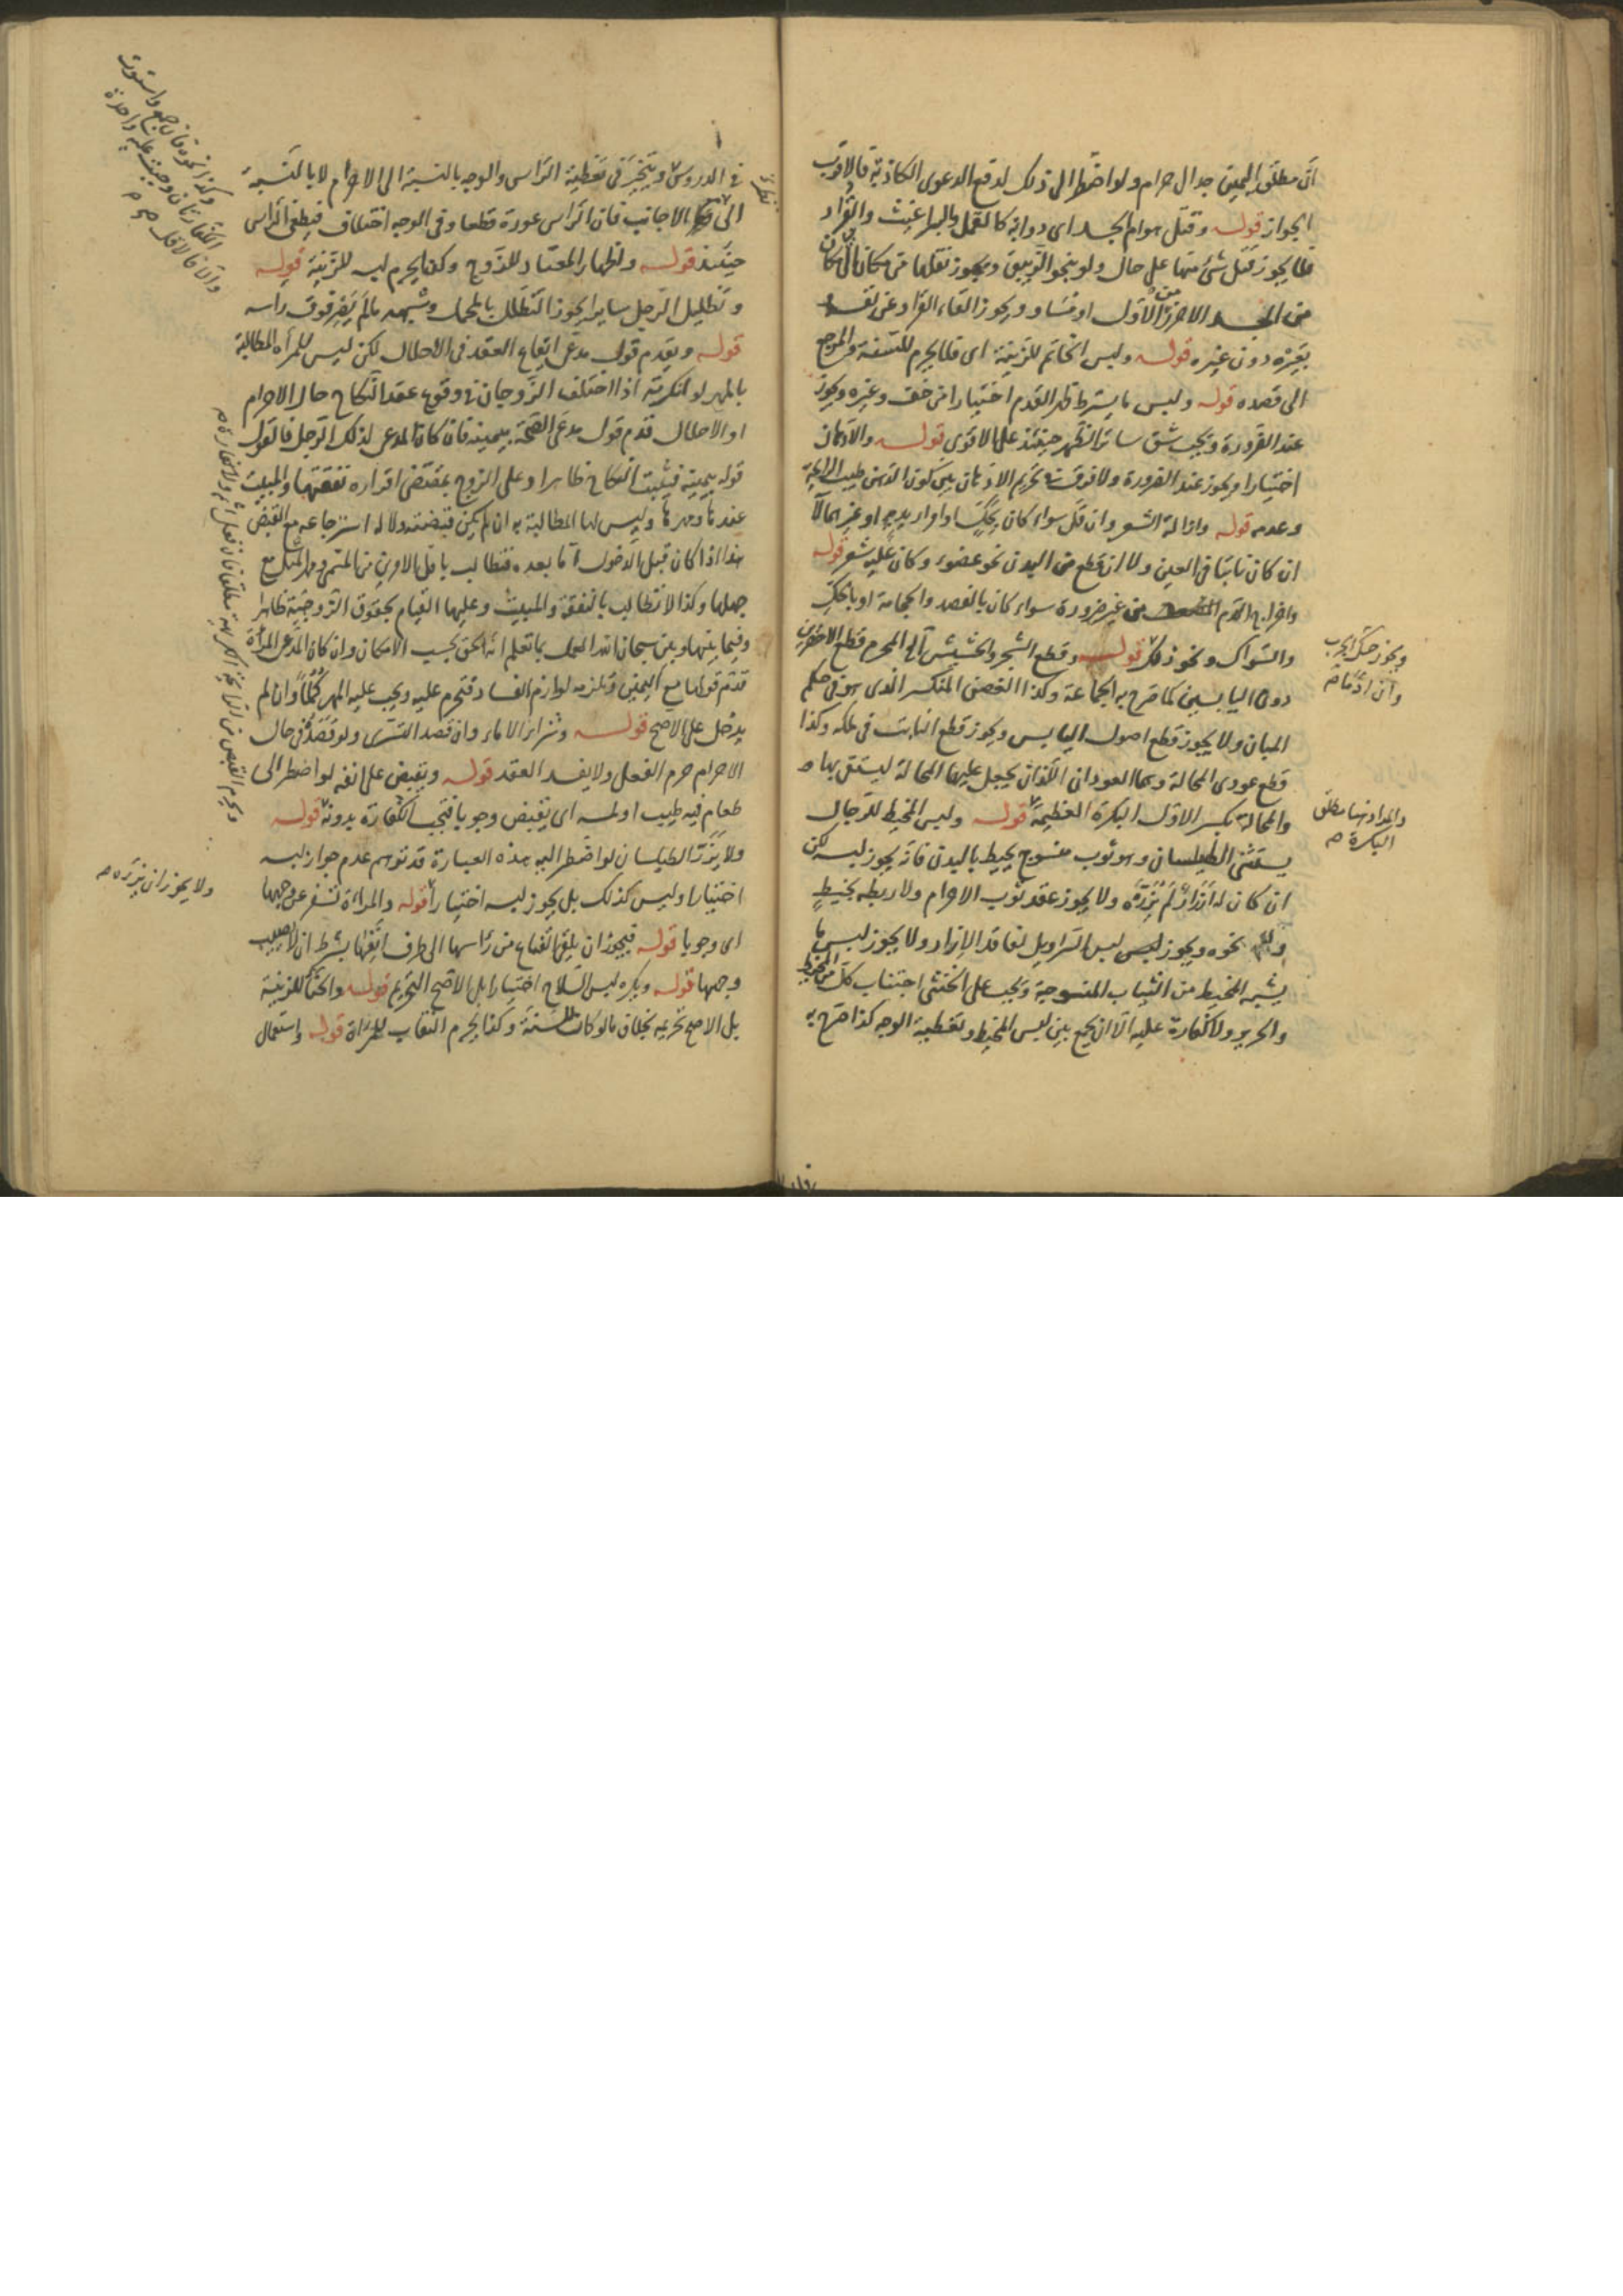 انّ مطلق اليمين جدال حرام ولو اضطر الى ذلك لدفع الدعوى الكاذبة فالاقرب
الجواز قوله وقتل هوام الجسد اى دوابه كالقمل والبراغيث والقراد
فلا يجوز قتل شئ منها على حال ولو بنحو الزيبق ويجوز نقلها من مكان الى مكان
من الجسد الاحرز من الاول او مساو ويجوز القاء القراد عن نفسه
بعيره دون غيره قوله ولبس الخاتم للزينة اى فلا يحرم للسنة والمرجع
الى قصده قوله ولبس ما يستر ظهر القدم اختيارا من خف وغيره ويجوز
عند الضرورة ويجب شق ساتر الظهر حينئذ على الاقوى قوله والادهان
اختيارا ويجوز عند الضرورة ولا فرق في تحريم الادهان بين كون الدهن طيب الرايحة
وعدمه قوله وازالة الشعر وان قل سواء كان بحكّ او امرار يده او غيرهما لا
ان كان نابتا فى العين ولا ان قطع من البدن نحو عضو وكان عليه شعر قوله
واخراج الدم من غير ضرورة سواء كان بالفصد والحجامة او بالحكّ
والسواك ونحو ذلك قوله وقطع الشجر والحشيش اى المحرم قطع الاخضرين
دون اليابسين كما صرح به الجماعة وكذا الغصن المنكسر الذى هو فى حكم
المبان ولا يجوز قطع اصول اليابس ويجوز قطع النابت فى ملكه وكذا
قطع عودى المحالة وهما العودان اللذان يجعل عليهما المحالة ليستقى بها
والمحالة بكسر الاول البكرة العظيمة قوله ولبس المخيط للرجال
يستثنى الطيلسان وهو ثوب منسوج يحيط بالبدن فانه يجوز لبسه لكن
ان كان له ازرار لم يزرّه ولا يجوز عقد ثوب الاحرام ولا ربطه بخيط
ولا نحوه ويجوز لبس السراويل لفاقد الازار ولا يجوز لبس ما
يشبه المخيط من الثياب المنسوجة ويجب على الخنثى اجتناب كل من المخيط
والحرير ولا كفارة عليه الا ان يجمع بين لبس المخيط وتغطية الوجه كذا صرح به
ويجوز حكّ الجرب
وان ادماه
والمراد منها مطلق
البكرة
في الدروس ويتخير فى تغطية الراس والوجه بالنسبة الى الاحرام لا بالنسبة
الى الاجانب فان الراس عورة قطعا وفى الوجه اختلاف فيغطى الراس
حينئذ قوله واظهار المعتاد للزوج وكذا يحرم لبسه للزينة قوله
وتظليل الرجل سايرا يجوز التظلل بالمحمل وشبهه ما لم يصر فوق راسه
قوله ويقدم قول مدعى ايقاع العقد فى الاحلال لكن ليس للمرأة المطالبة
بالمهر لو انكرته اذا اختلف الزوجان في وقوع عقد النكاح حال الاحرام
او الاحلال قدم قول مدعى الصحة بيمينه فان كان المدعى لذلك الرجل فالقول
قوله بيمينه فيثبت النكاح ظاهرا وعلى الزوج بمقتضى اقراره نفقتها والمبيت
عندها ومهرها وليس لها المطالبة به ان لم يكن قبضته ولا له استرجاعه مع القبض
هذا اذا كان قبل الدخول اما بعده فتطالب باقل الامرين من المسمى ومهر المثل مع
جهلها وكذا لا تطالب بالنفقة والمبيت وعليها القيام بحقوق الزوجية ظاهرا
وفيما بينها وبين سبحانه العمل بما تعلم انه الحق بحسب الامكان وان كان المدعى المرأة
قدم قولها مع اليمين وتلزمه لوازم الفساد فتحرم عليه ويجب عليه المهر كملا وان لم
يدخل على الاصح قوله وشراء الاماء وان قصد التسرى ولو قصده فى حال
الاحرام حرم الفعل ولا يفسد العقد قوله ويقبض على انفه لو اضطر الى
طعام فيه طيب او لمسه اى يقبض وجوبا فتجب الكفارة بدونه قوله
ولا يزرّ الطيلسان لو اضطر اليه هذه العبارة قد توهم عدم جواز لبسه
اختيارا وليس كذلك بل يجوز لبسه اختيارا قوله والمراة تسفر عن وجهها
اى وجوبا قوله فيجوز ان يلقى القناع من راسها الى طرف انفها بشرط ان لا يصيب
وجهها قوله ويكره لبس السلاح اختيارا بل الاصح التحريم قوله والحناء للزينة
بل الاصح تحريمه بخلاف ما لو كان للسنة وكذا يحرم النقاب للمراة قوله واستعمال
ولا يجوز ان يزرّه